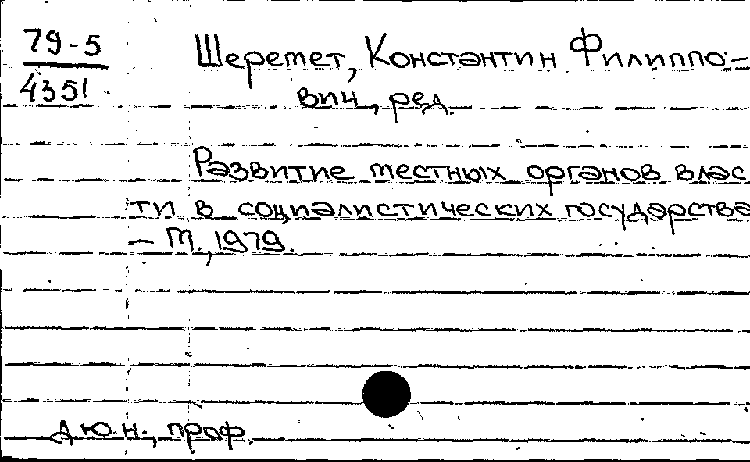 79-5
4351
Шеремет, Константин Филиппо-
вич, ред.
Развитие местных органов влас
ти в социалистических государства
- М., 1979.
д.ю.н., проф.